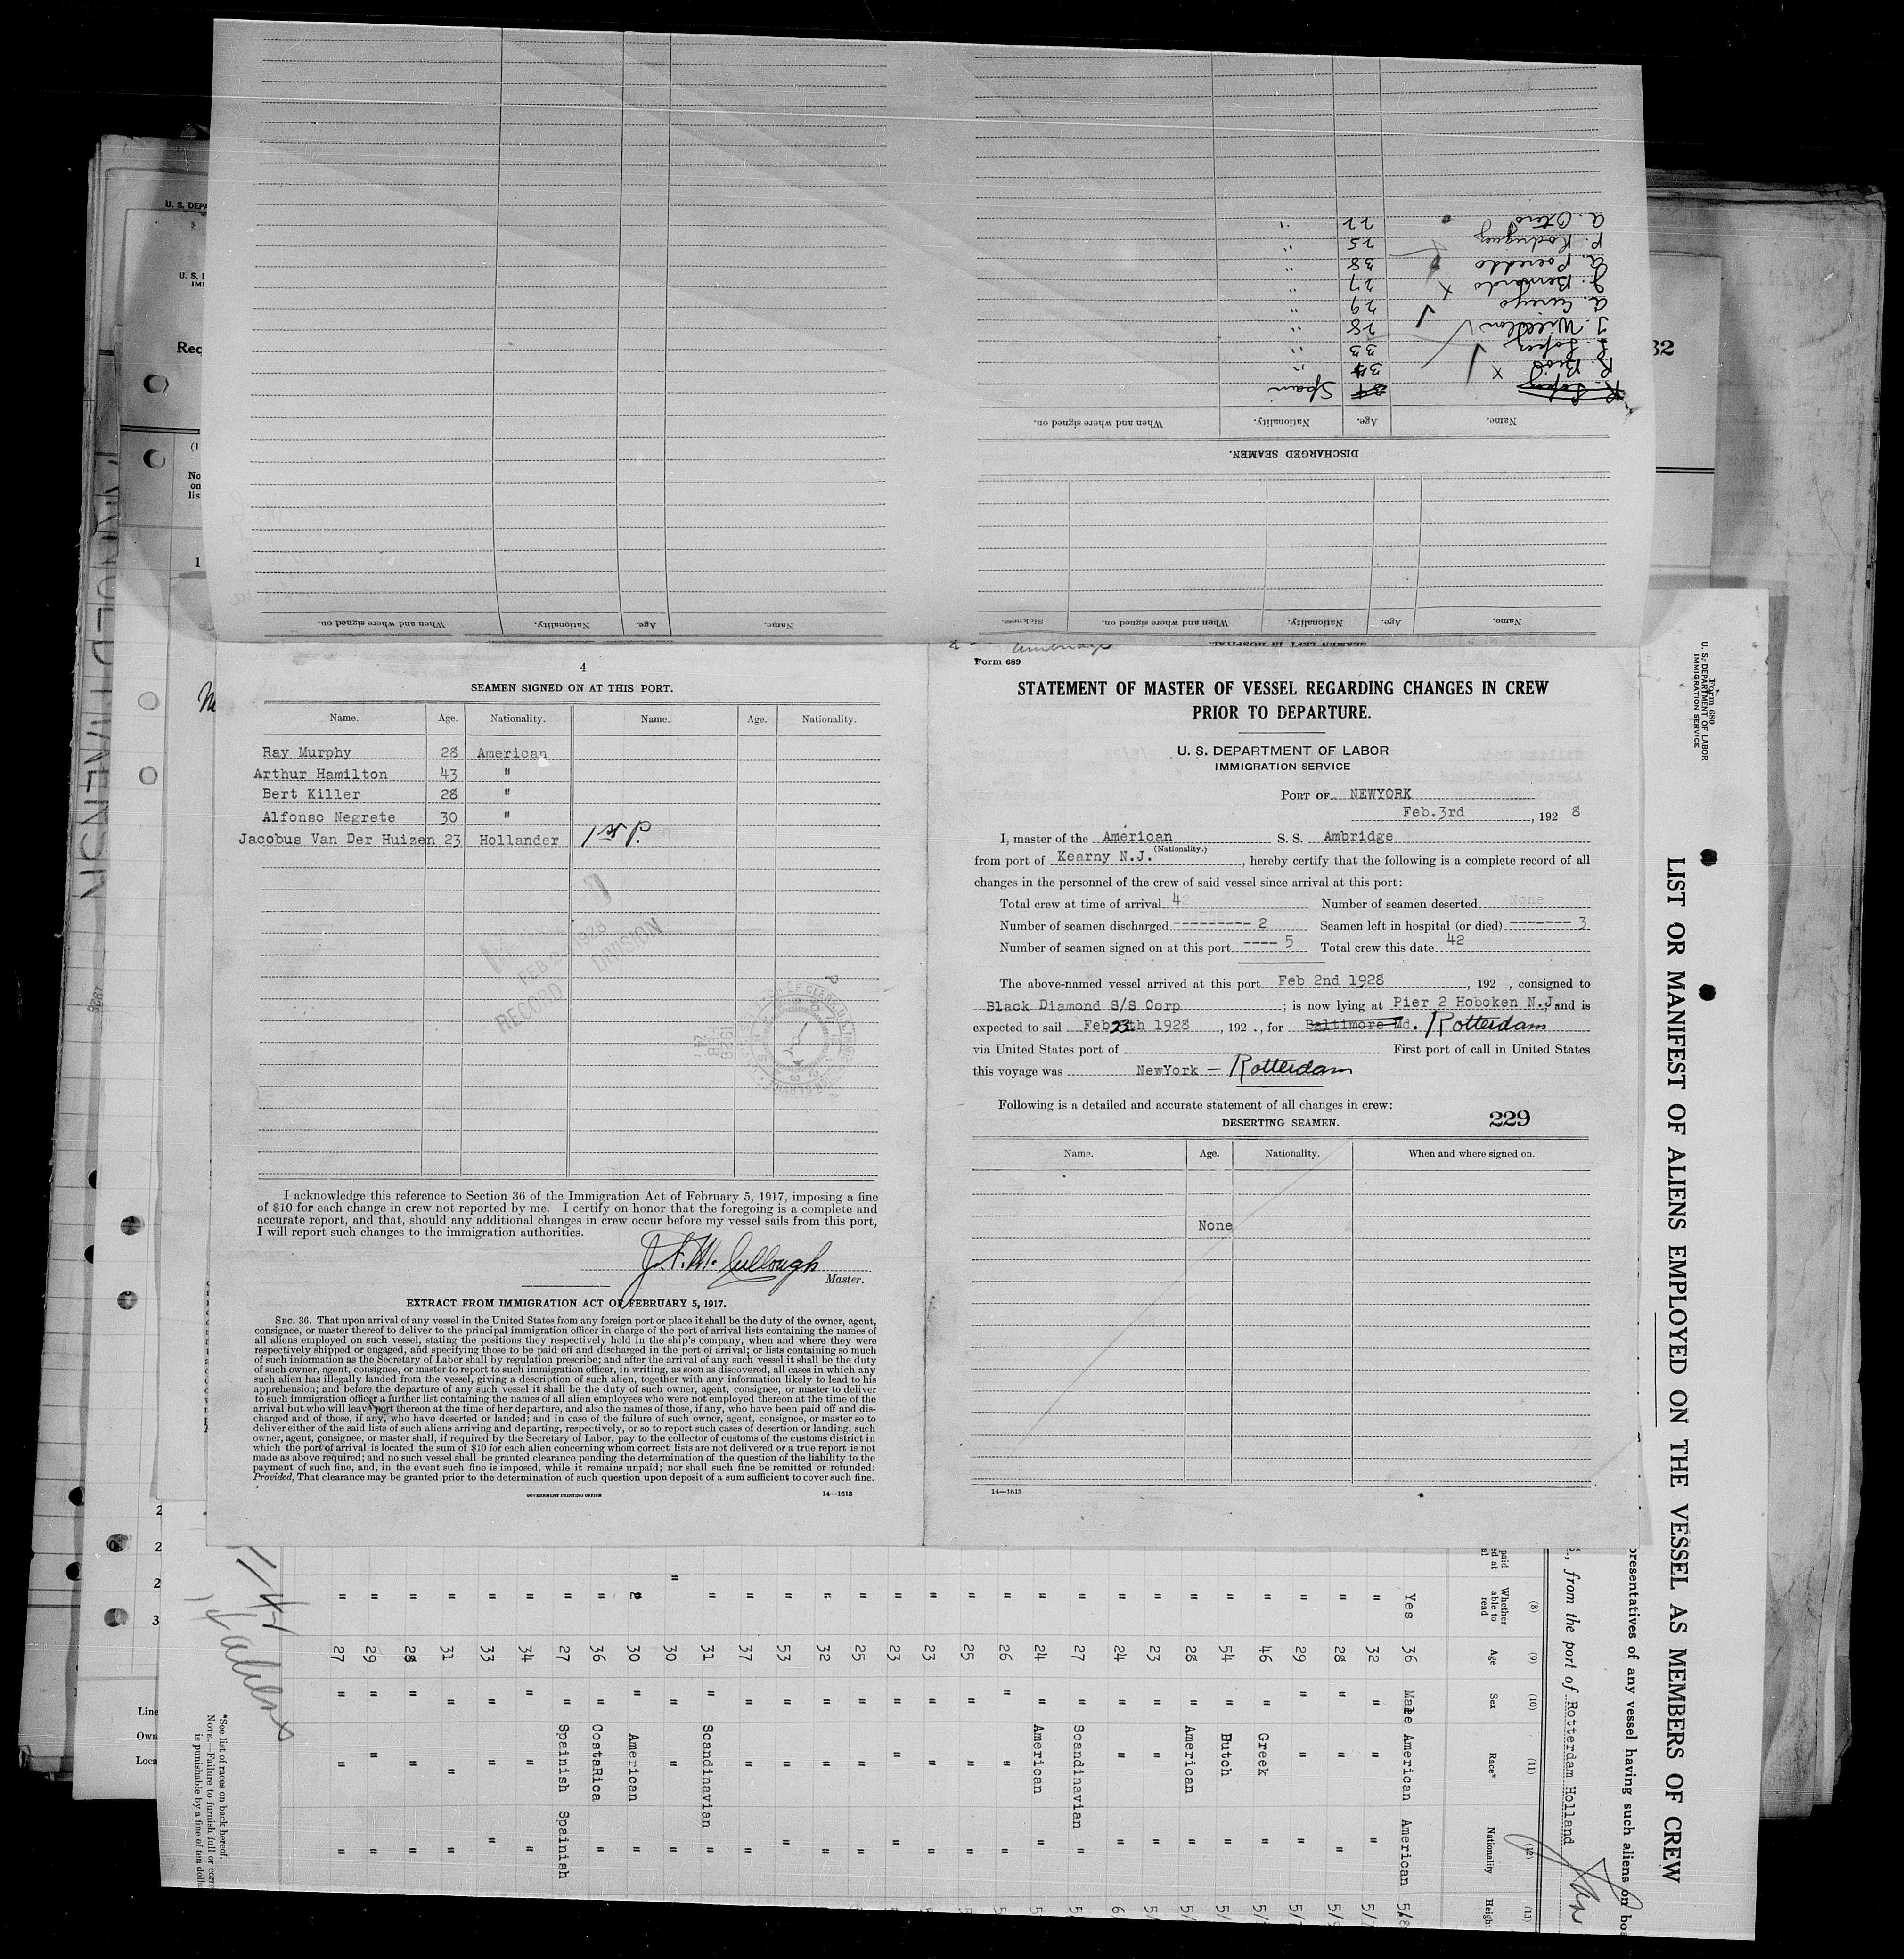 4
SEAMEN SIGNED ON AT THIS PORT.
Name. Age. Nationality. Name. Age. Nationality.
Ray Murphy 28 American
Arthur Hamilton 43 "
Bert Killer 28 "
Alfonso Negrete 30 "
Jacobus Van Der Huizen 23 Hollander 1st P.
RECORD DIVISION
I acknowledge this reference to Section 36 of the Immigration Act of February 5, 1917, imposing a fine
of $10 for each change in crew not reported by me. I certify on honor that the foregoing is a complete and
accurate report, and that, should any additional changes in crew occur before my vessel sails from this port,
I will report such changes to the immigration authorities.
J. F. McCullough
Master.
EXTRACT FROM IMMIGRATION ACT OF FEBRUARY 5, 1917.
SEC. 36. That upon arrival of any vessel in the United States from any foreign port or place it shall be the duty of the owner, agent,
consignee, or master thereof to deliver to the principal immigration officer in charge of the port of arrival lists containing the names of
all aliens employed on such vessel, stating the positions they respectively hold in the ship's company, when and where they were
respectively shipped or engaged, and specifying those to be paid off and discharged in the port of arrival; or lists containing so much
of such information as the Secretary of Labor shall by regulation prescribe; and after the arrival of any such vessel it shall be the duty
of such owner, agent, consignee, or master to report to such immigration officer, in writing, as soon as discovered, all cases in which any
such alien has illegally landed from the vessel, giving a description of such alien, together with any information likely to lead to his
apprehension; and before the departure of any such vessel it shall be the duty of such owner, agent, consignee, or master to deliver
to such immigration officer a further list containing the names of all alien employees who were not employed thereon at the time of the
arrival but who will leave port thereon at the time of her departure, and also the names of those, if any, who have been paid off and dis-
charged and of those, if any, who have deserted or landed; and in case of the failure of such owner, agent, consignee, or master so to
deliver either of the said lists of such aliens arriving and departing, respectively, or so to report such cases of desertion or landing, such
owner, agent, consignee, or master shall, if required by the Secretary of Labor, pay to the collector of customs of the customs district in
which the port of arrival is located the sum of $10 for each alien concerning whom correct lists are not delivered or a true report is not
made as above required; and no such vessel shall be granted clearance pending the determination of the question of the liability to the
payment of such fine, and, in the event such fine is imposed, while it remains unpaid; nor shall such fine be remitted or refunded:
Provided, That clearance may be granted prior to the determination of such question upon deposit of a sum sufficient to cover such fine.
GOVERNMENT PRINTING OFFICE 14—1613
Form 689
STATEMENT OF MASTER OF VESSEL REGARDING CHANGES IN CREW
PRIOR TO DEPARTURE.
U. S. DEPARTMENT OF LABOR
IMMIGRATION SERVICE
PORT OF NEWYORK
Feb.3rd, 1928
I, master of the American S. S. Ambridge
(Nationality.)
from port of Kearny N.J., hereby certify that the following is a complete record of all
changes in the personnel of the crew of said vessel since arrival at this port:
Total crew at time of arrival 42 Number of seamen deserted None
Number of seamen discharged ---------- 2 Seamen left in hospital (or died) ------- 3
Number of seamen signed on at this port ---- 5 Total crew this date 42
The above-named vessel arrived at this port Feb 2nd 1928, 192 , consigned to
Black Diamond S/S Corp ; is now lying at Pier 2 Hoboken N.J. and is
expected to sail Feb 23th 1928, 192 ., for Baltimore Md. Rotterdam
via United States port of First port of call in United States
this voyage was NewYork — Rotterdam
Following is a detailed and accurate statement of all changes in crew:
229
DESERTING SEAMEN.
Name. Age. Nationality. When and where signed on.
None
14—1613
SEAMEN LEFT IN HOSPITAL.
Name. Age. Nationality. When and where signed on. Sickness.
DISCHARGED SEAMEN.
Name. Age. Nationality. When and where signed on.
R. Lopez 34 Spain
34 "
L. Lopez 33 "
28 "
29 "
J. Bernardo 27 "
38 "
P. Rodriguez 25 "
A. Otero 22 "
Name. Age. Nationality. When and where signed on.
Form 680
U. S. DEPARTMENT OF LABOR
IMMIGRATION SERVICE
LIST OR MANIFEST OF ALIENS EMPLOYED ON THE VESSEL AS MEMBERS OF CREW
resentatives of any vessel having such aliens on boa
, from the port of Rotterdam Holland
(8) (9) (10) (11) (12) (13)
Whether able to read Age Sex Race* Nationality Height
Yes 36 Male American American 5/8
" 32 " " "
" 28 " " "
" 29 " " "
" 46 " Greek "
" 54 " Dutch "
" 28 " American "
" 23 " " "
" 24 " " "
" 27 " Scandinavian "
" 24 " American "
" 26 " " "
" 25 " " "
" 23 " " "
" 23 " " "
" 25 " " "
" 32 " " "
" 53 " " "
" 37 " " "
" 31 " Scandinavian "
" 30 " " "
" 30 " American "
" 36 " CostaRica "
" 27 " Spainish Spainish
" 34 " " "
" 33 " " "
" 31 " " "
" 28 " " "
" 29 " " "
" 27 " " "
*See list of races on back hereof.
NOTE.—Failure to furnish full or corre
is punishable by a fine of ten dolla
U. S. DEPA
Rec
32
No
on
lis
1
Line
Own
Loca